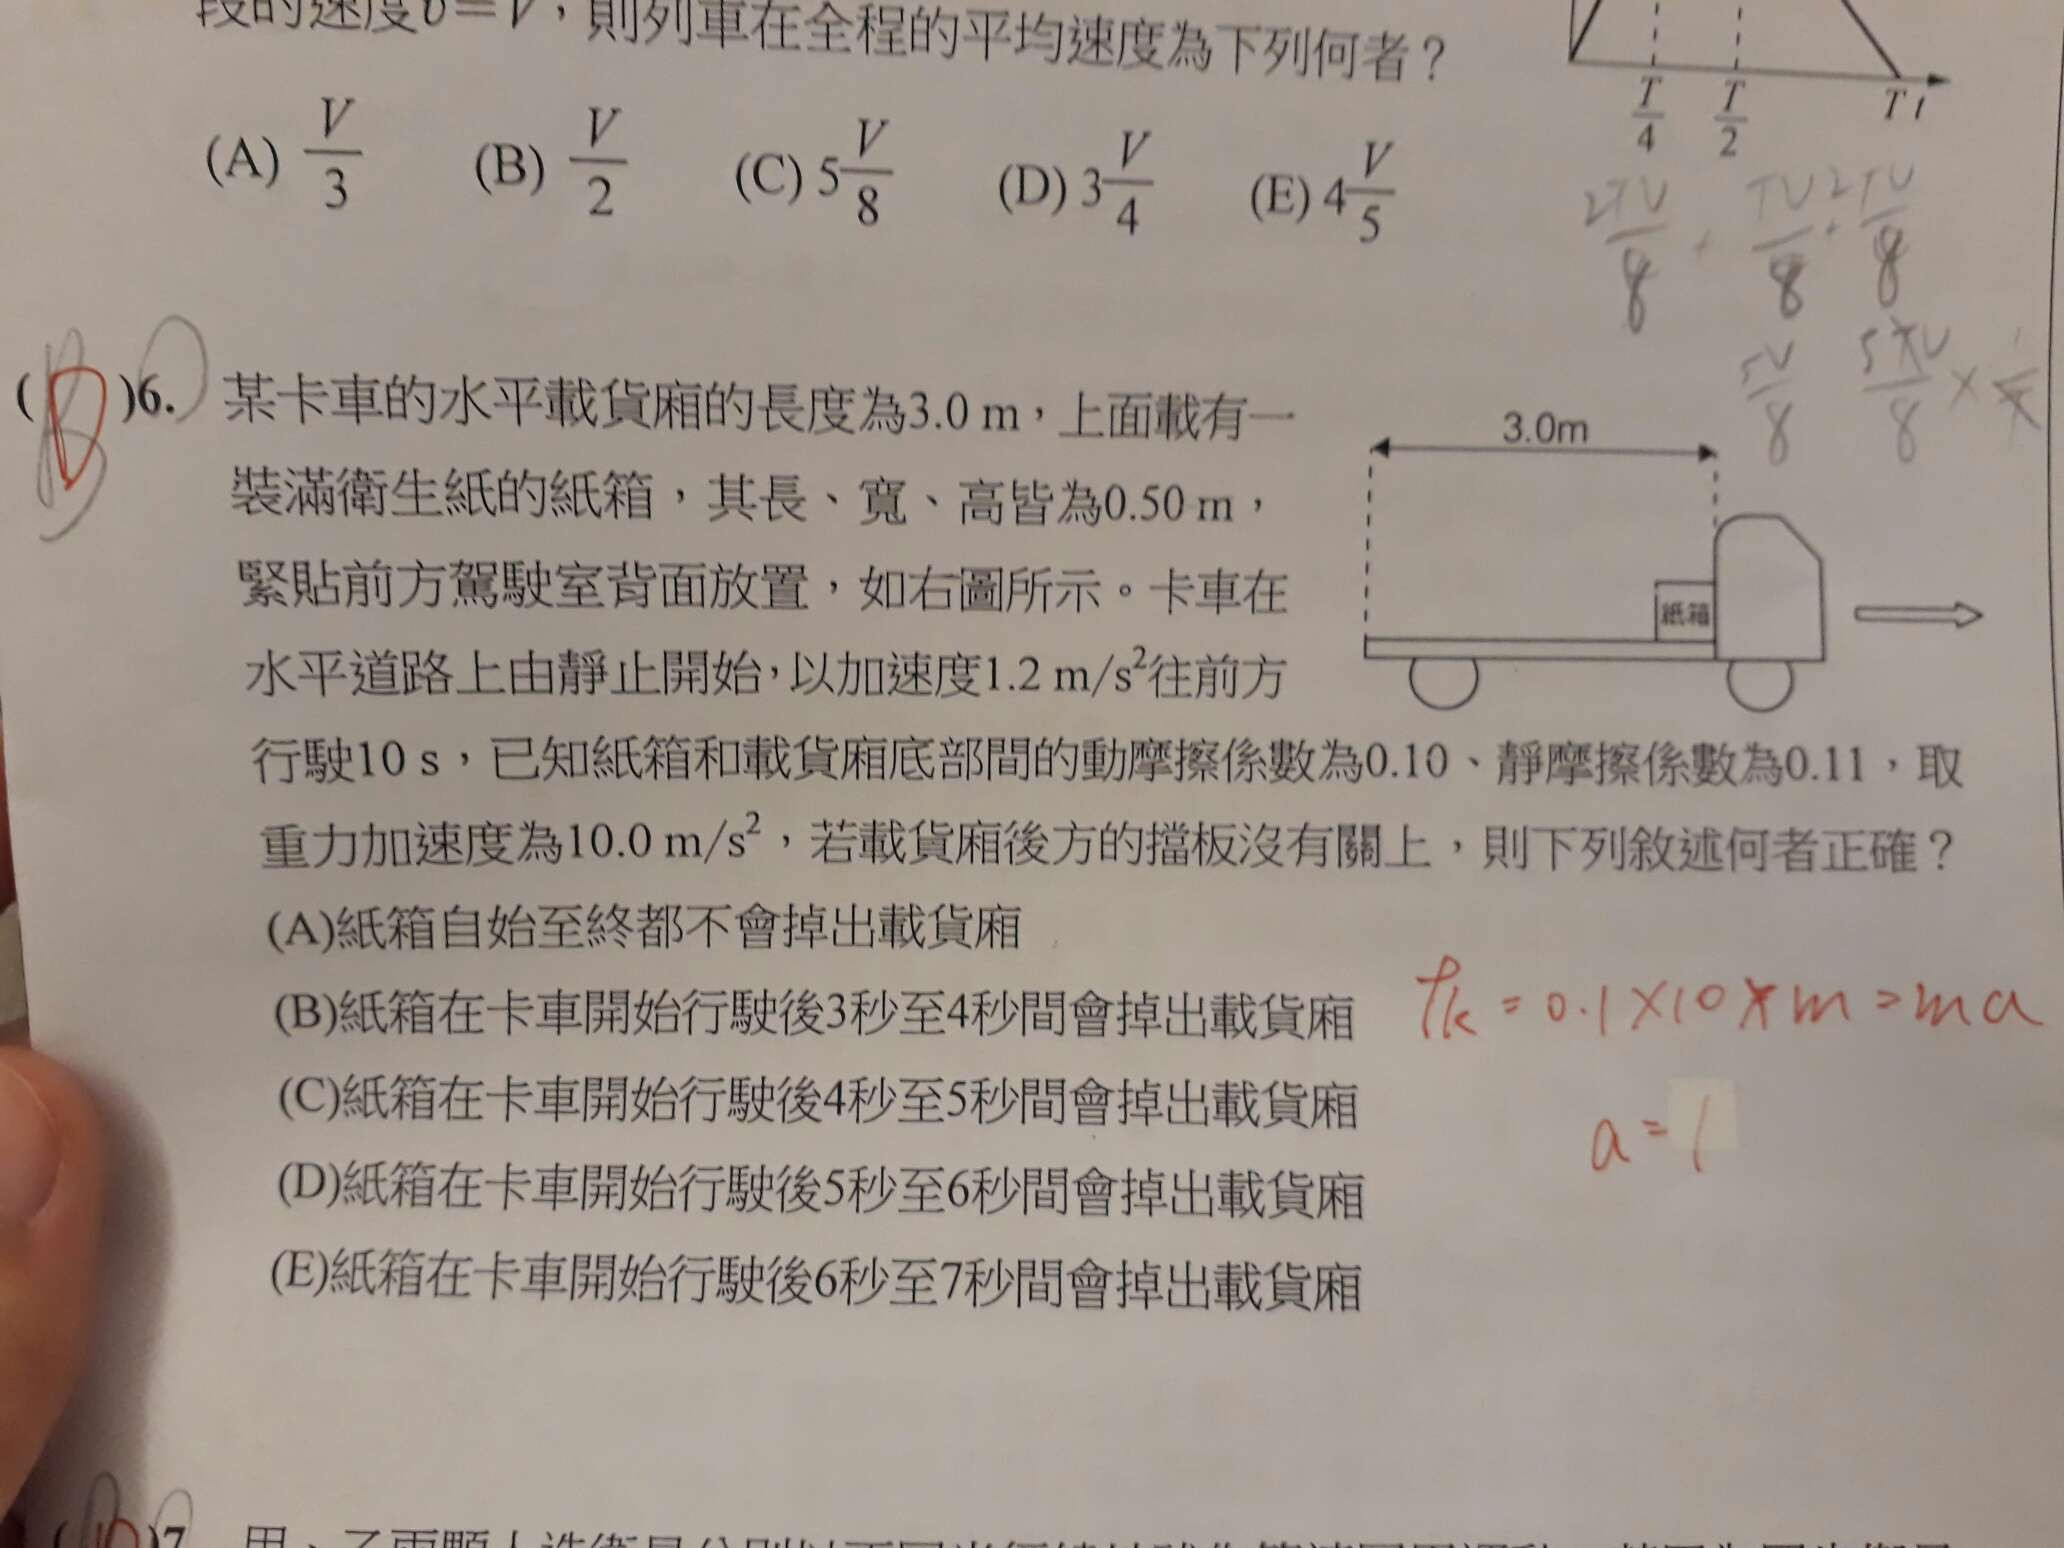 段的速度v=V，則列車在全程的平均速度為下列何者？
(A) V/3 (B) V/2 (C) 5V/8 (D) 3V/4 (E) 4V/5
T/4 T/2 T t
2TV/8 + TV/8 + 2TV/8
5V/8 5TV/8 ×
(D)6. 某卡車的水平載貨廂的長度為3.0 m，上面載有一
裝滿衛生紙的紙箱，其長、寬、高皆為0.50 m，
緊貼前方駕駛室背面放置，如右圖所示。卡車在
水平道路上由靜止開始，以加速度1.2 m/s²往前方
行駛10 s，已知紙箱和載貨廂底部間的動摩擦係數為0.10、靜摩擦係數為0.11，取
重力加速度為10.0 m/s²，若載貨廂後方的擋板沒有關上，則下列敘述何者正確？
3.0m
紙箱
(A)紙箱自始至終都不會掉出載貨廂
(B)紙箱在卡車開始行駛後3秒至4秒間會掉出載貨廂
(C)紙箱在卡車開始行駛後4秒至5秒間會掉出載貨廂
(D)紙箱在卡車開始行駛後5秒至6秒間會掉出載貨廂
(E)紙箱在卡車開始行駛後6秒至7秒間會掉出載貨廂
fk = 0.1×10×m = ma
a = 1
)7.